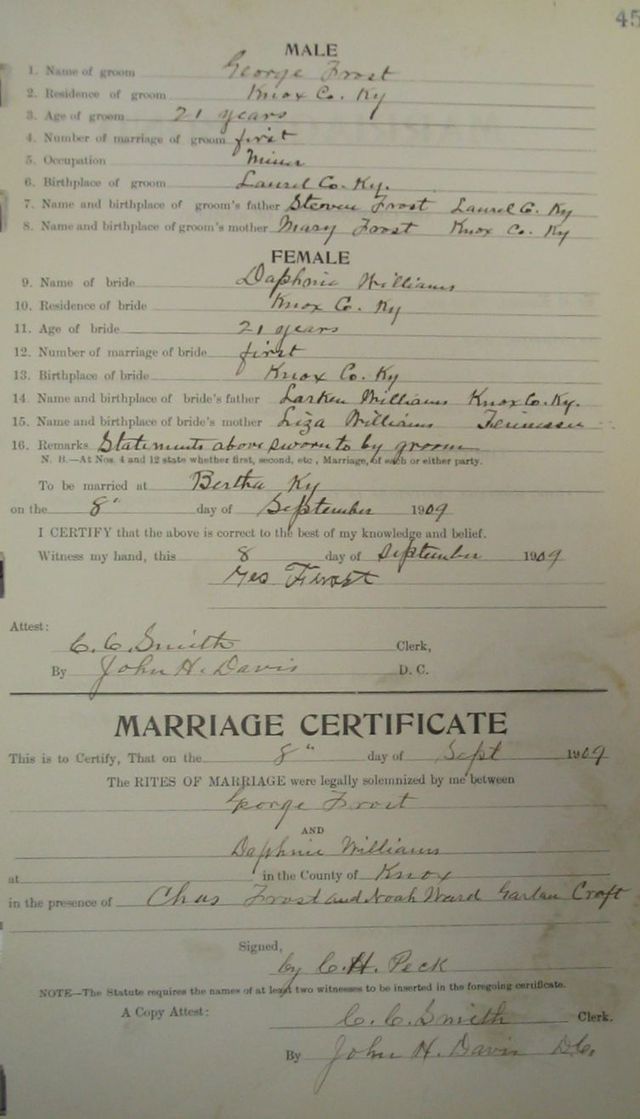 45
MALE
1. Name of groom George Frost
2. Residence of groom Knox Co. Ky
3. Age of groom 21 years
4. Number of marriage of groom first
5. Occupation Miner
6. Birthplace of groom Laurel Co. Ky.
7. Name and birthplace of groom's father Steven Frost Laurel Co. Ky
8. Name and birthplace of groom's mother Mary Frost Knox Co. Ky
FEMALE
9. Name of bride Daphnie Williams
10. Residence of bride Knox Co. Ky
11. Age of bride 21 years
12. Number of marriage of bride first
13. Birthplace of bride Knox Co. Ky
14. Name and birthplace of bride's father Larken Williams Knox Co. Ky.
15. Name and birthplace of bride's mother Liza Williams Tennessee
16. Remarks Statements above sworn to by groom
N. B.—At Nos. 4 and 12 state whether first, second, etc, Marriage, of each or either party.
To be married at Bertha Ky
on the 8" day of September 1909
I CERTIFY that the above is correct to the best of my knowledge and belief.
Witness my hand, this 8 day of September 1909
Geo Frost
Attest:
C. C. Smith Clerk,
By John H. Davis D. C.
MARRIAGE CERTIFICATE
This is to Certify, That on the 8" day of Sept 1909
The RITES OF MARRIAGE were legally solemnized by me between
George Frost
AND
Daphnie Williams
at in the County of Knox
in the presence of Chas Frost and Noah Ward Garlan Croft
Signed,
by C. H. Peck
NOTE—The Statute requires the names of at least two witnesses to be inserted in the foregoing certificate.
A Copy Attest: C. C. Smith Clerk.
By John H. Davis D.C.